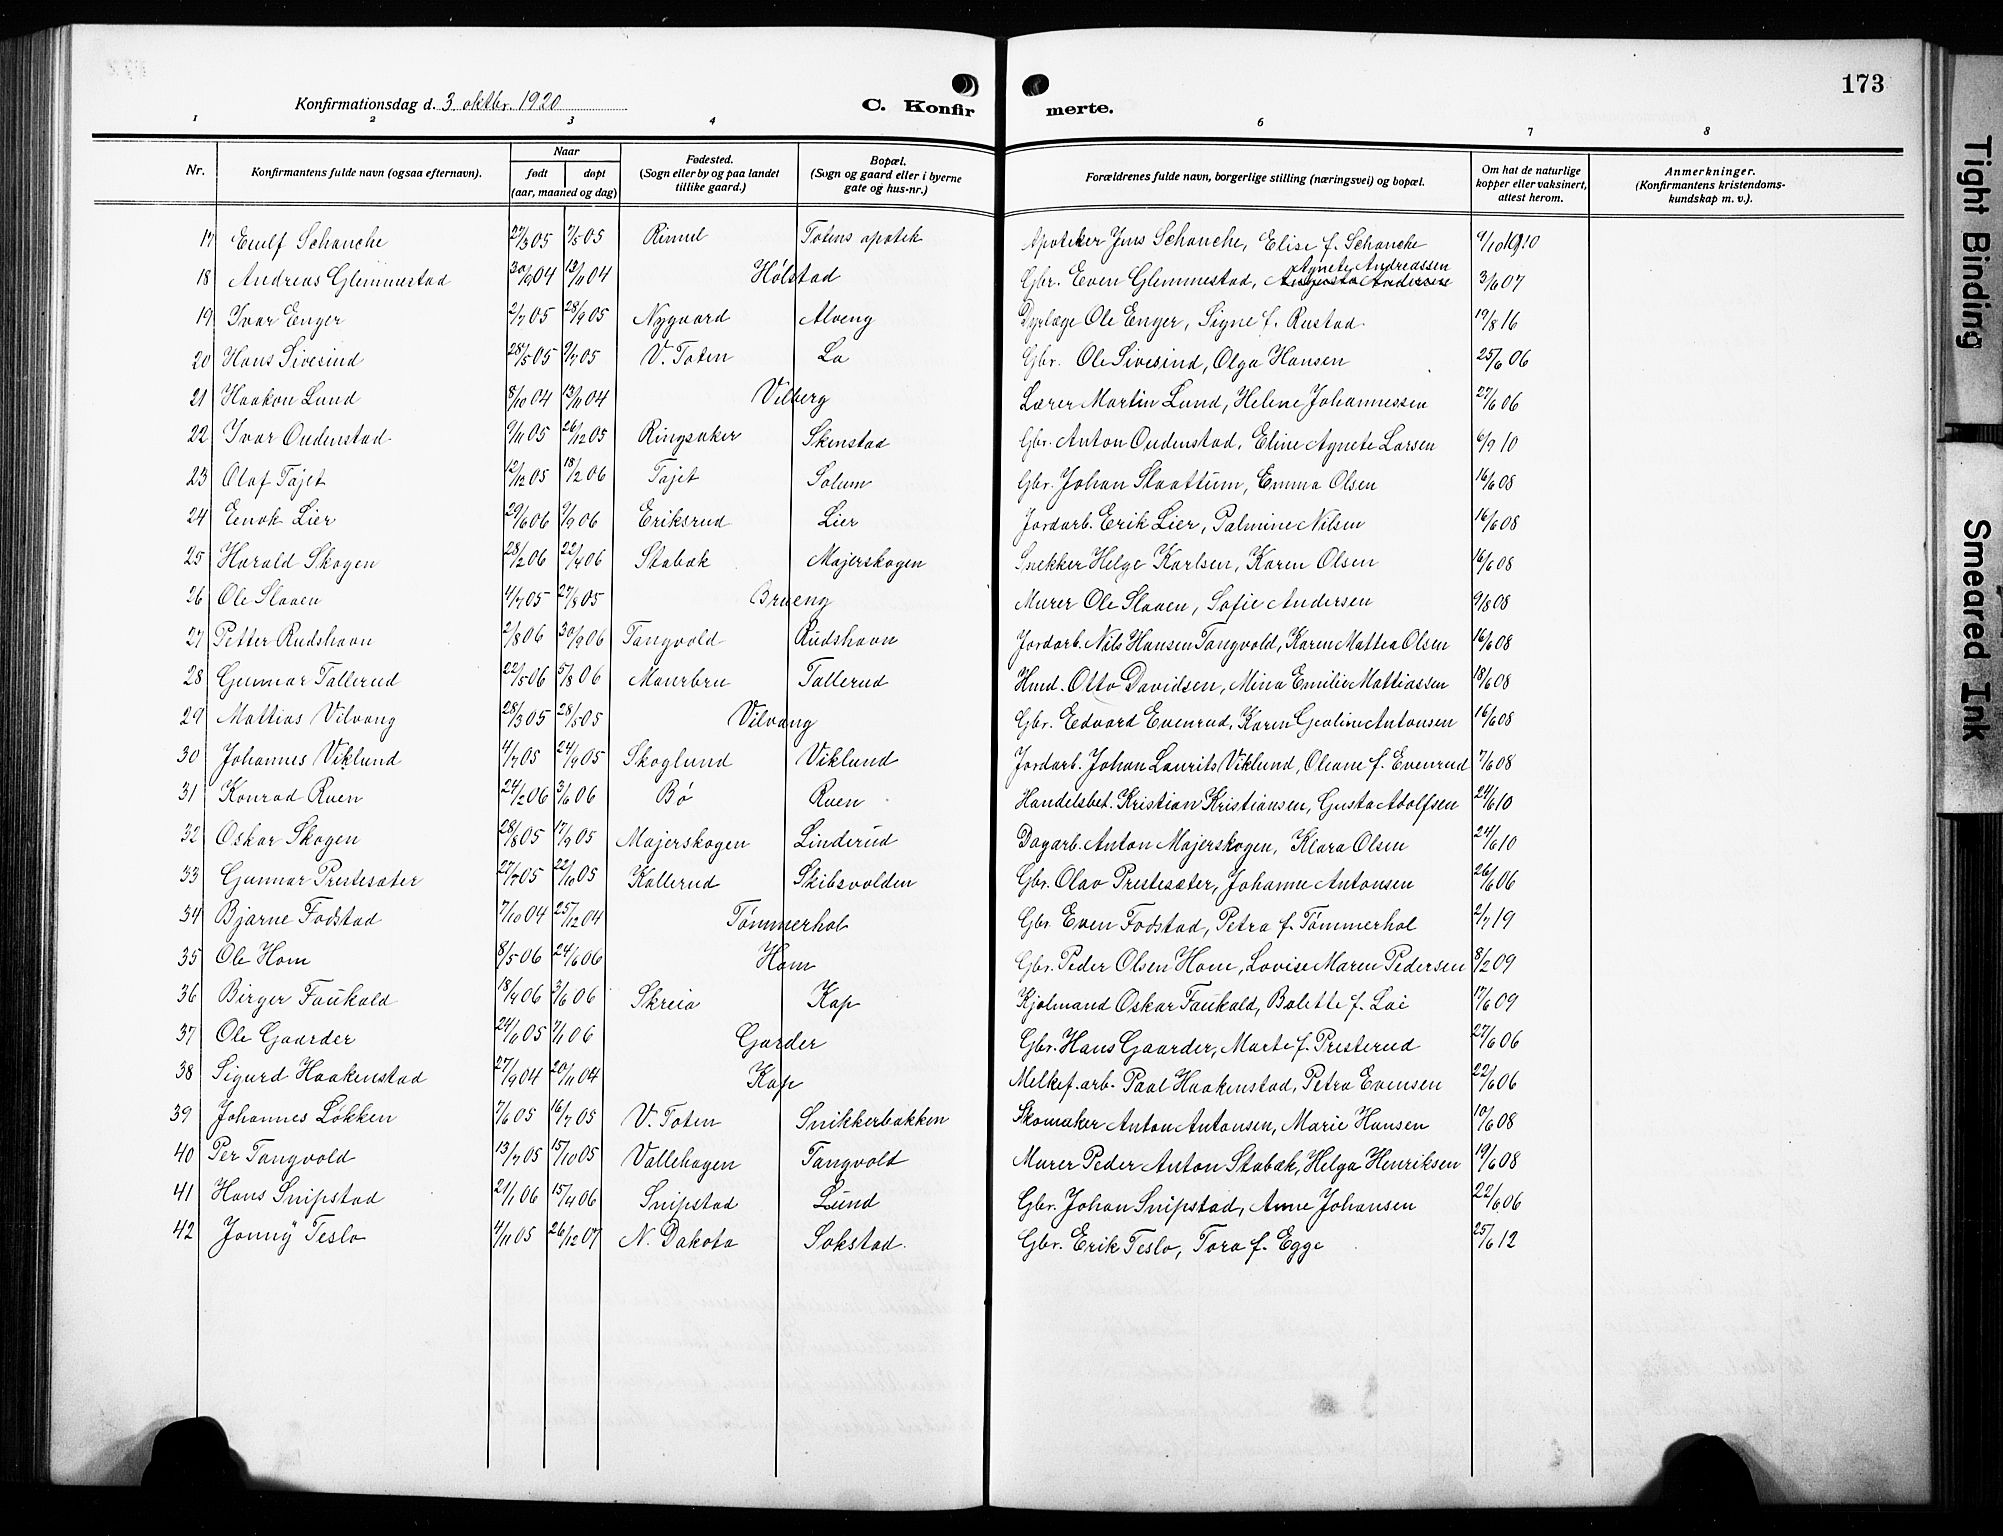 173
Konfirmationsdag d. 3. oktbr. 1920
C. Konfirmerte.
1 2 3 4 6 7 8
Nr. Konfirmantens fulde navn (ogsaa efternavn). Naar født døpt (aar, maaned og dag) Fødested. (Sogn eller by og paa landet tillike gaard.) Bopæl. (Sogn og gaard eller i byerne gate og hus-nr.) Forældrenes fulde navn, borgerlige stilling (næringsvei) og bopæl. Om hat de naturlige kopper eller vaksinert, attest herom. Anmerkninger. (Konfirmantens kristendoms-kundskap m. v.).
17 Schanche 27/3 05 7/5 05 Totens apotek Apoteker Jens Schanche, Elise f. Schanche
18 Andreas Glemmestad 30/9 04 13/11 04 Hølstad Gbr. Even Glemmestad, Agnete Andreassen 3/6 07
19 Ivar Enger 2/7 05 28/9 05 Nygaard Alveng Dyrlæge Ole Enger, Signe f. Rustad 19/8 16
20 Hans Sivesind 28/5 05 9/7 05 V. Toten Lo Gbr. Ole Sivesind, Olga Hansen 25/6 06
21 Haakon Lund 8/10 04 13/11 04 Vilberg Lærer Martin Lund, Helene Johannessen 27/6 06
22 Ivar Oudenstad 9/11 05 26/12 05 Ringsaker Skinstad Gbr. Anton Oudenstad, Eline Agnete Larsen 6/9 10
23 Olaf Tajet 12/12 05 18/2 06 Tajet Solum Gbr. Johan Slaattum, Emma Olsen 16/6 08
24 Enok Lier 29/6 06 9/9 06 Eriksrud Lier Jordarb. Erik Lier, Palmine Nilsen 16/6 08
25 Harald Skogen 28/2 06 22/4 06 Stabæk Majerskogen Snekker Helge Karlsen, Karen Olsen 16/6 08
26 Ole Slaaen 4/7 05 27/8 05 Brueng Murer Ole Slaaen, Sofie Andersen 9/8 08
27 Petter Rudshavn 2/8 06 30/9 06 Tangvold Rudshavn Jordarb. Nils Hansen Tangvold, Karen Mattea Olsen 16/6 08
28 Gunnar Tallerud 22/5 06 5/8 06 Maurbru Tallerud Hmd. Otto Davidsen, Mina Emilie Mattiassen 18/6 08
29 Mattias Vilvang 28/3 05 28/5 05 Vilvang Gbr. Edvard Evenrud, Karen Gealine Antonsen 16/6 08
30 Johannes Viklund 4/7 05 24/9 05 Skoglund Viklund Jordarb. Johan Laurits Viklund, Oleane f. Evenrud 7/6 08
31 Konrad Ruen 24/2 06 3/6 06 Bø Ruen Handelsbet. Kristian Kristiansen, Gusta Adolfsen 24/6 10
32 Oskar Skogen 28/8 05 17/9 05 Majerskogen Linderud Dagarb. Anton Majerskogen, Klara Olsen 24/6 10
33 Gunnar Prestesæter 27/7 05 22/10 05 Kallerud Skibsvolden Gbr. Olav Prestesæter, Johanne Antonsen 26/6 06
34 Bjarne Fodstad 7/10 04 25/12 04 Tømmerhol Gbr. Even Fodstad, Petra f. Tømmerhol 2/7 19
35 Ole Hom 8/5 06 24/6 06 Hom Gbr. Peder Olsen Hom, Lovise Maren Pedersen 8/2 09
36 Birger Faukald 18/4 06 3/6 06 Skreia Kap Kjølmand Oskar Faukald, Balette f. Loe 17/6 09
37 Ole Gaarder 24/6 05 7/1 06 Garder Gbr. Hans Gaarder, Marte f. Presterud 27/6 06
38 Sigurd Haakenstad 27/9 04 20/11 04 Kap Melkef.arb. Paal Haakenstad, Petra Evensen 22/6 06
39 Johannes Løkken 7/6 05 16/7 05 V. Toten Snikkerbakken Skomaker Anton Antonsen, Marie Hansen 10/6 08
40 Per Tangvold 13/7 05 15/10 05 Vallehagen Tangvold Murer Peder Anton Stabæk, Helga Henriksen 19/6 08
41 Hans Snipstad 21/1 06 15/4 06 Snipstad Lund Gbr. Johan Snipstad, Anne Johansen 22/6 06
42 Jonny Teslo 4/11 05 26/12 07 N. Dakota Sokstad. Gbr. Erik Teslo, Tora f. Egge 25/6 12
Tight Binding
Smeared Ink